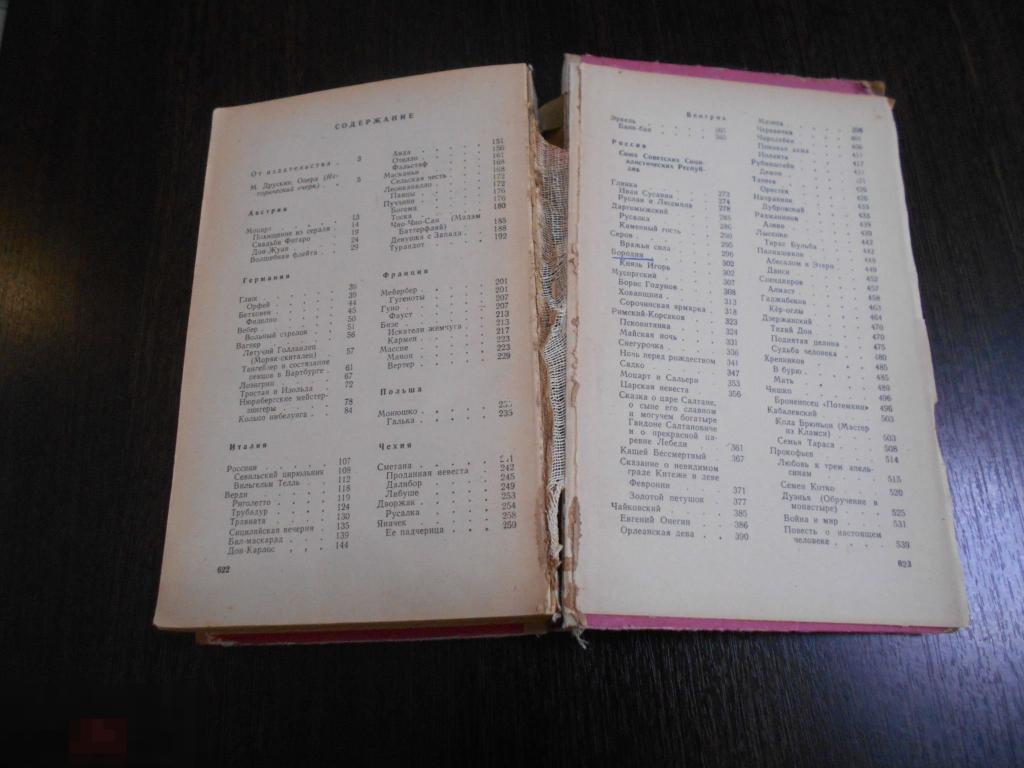 СОДЕРЖАНИЕ
От издательства . 3
М. Друскин. Опера (Исторический очерк) . . 5
Австрия
Моцарт . . . 13
Похищение из сераля 14
Свадьба Фигаро . 19
Дон-Жуан . . . 24
Волшебная флейта . 29
Германия
Глюк . . . 39
Орфей . . . 39
Бетховен . . . 44
Фиделио . . . 45
Вебер . . . 50
Вольный стрелок . 51
Вагнер . . . 56
Летучий Голландец
(Моряк-скиталец) 57
Тангейзер и состязание
певцов в Вартбурге . 61
Лоэнгрин . . . 67
Тристан и Изольда . 72
Нюрнбергские мейстер-
зингеры . . . 78
Кольцо нибелунга . . 84
Италия
Россини . . . 107
Севильский цирюльник 108
Вильгельм Телль . . 112
Верди . . . 118
Риголетто . . . 119
Трубадур . . . 124
Травиата . . . 130
Сицилийская вечерня . 135
Бал-маскарад . . 139
Дон-Карлос . . . 144
Аида . . . 151
Отелло . . . 156
Фальстаф . . . 161
Масканьи . . . 168
Сельская честь . . 168
Леонкавалло . . . 172
Паяцы . . . 172
Пуччини . . . 176
Богема . . . 176
Тоска . . . 180
Чио-Чио-Сан (Мадам
Баттерфляй) . . 185
Девушка с Запада . . 188
Турандот . . . 192
Франция
Мейербер . . . 201
Гугеноты . . . 201
Гуно . . . 207
Фауст . . . 207
Бизе . . . 213
Искатели жемчуга . . 213
Кармен . . . 217
Массне . . . 223
Манон . . . 223
Вертер . . . 229
Польша
Монюшко . . .
Галька . . . 235
Чехия
Сметана . . . 241
Проданная невеста . 242
Далибор . . . 245
Либуше . . . 249
Дворжак . . . 253
Русалка . . . 254
Яначек . . . 258
Ее падчерица . . . 259
622
Венгрия
Эркель . . .
Банк-бан . . .
Россия
Союз Советских Социа-
листических Респуб-
лик
Глинка . . .
Иван Сусанин . . 273
Руслан и Людмила . 274
Даргомыжский . . . 278
Русалка . . . 285
Каменный гость . . 286
Серов . . . 293
Вражья сила . . 295
Бородин . . . 296
Князь Игорь . . 302
Мусоргский . . . 302
Борис Годунов . . 307
Хованщина . . . 308
Сорочинская ярмарка . 313
Римский-Корсаков . . 318
Псковитянка . . 323
Майская ночь . . 324
Снегурочка . . . 331
Ночь перед рождеством 336
Садко . . . 341
Моцарт и Сальери . 347
Царская невеста . . 353
Сказка о царе Салтане, 356
о сыне его славном
и могучем богатыре
Гвидоне Салтановиче
и о прекрасной ца-
ревне Лебеди . . 361
Кащей Бессмертный . 367
Сказание о невидимом
граде Китеже и деве
Февронии . . . 371
Золотой петушок . . 377
Чайковский . . . 385
Евгений Онегин . . 386
Орлеанская дева . . 390
Мазепа . . . 398
Черевички . . .
Чародейка . . .
Пиковая дама . . .
Иоланта . . . 417
Рубинштейн . . .
Демон . . .
Танеев . . .
Орестея . . .
Направник . . .
Дубровский . . .
Рахманинов . . .
Алеко . . . 439
Лысенко . . . 442
Тарас Бульба . . 442
Палиашвили . . . 448
Абесалом и Этери . 449
Даиси . . . 452
Спендиаров . . . 457
Алмаст . . . 458
Гаджибеков . . . 463
Кёр-оглы . . . 464
Дзержинский . . . 470
Тихий Дон . . . 470
Поднятая целина . . 475
Судьба человека . . 480
Хренников . . . 485
В бурю . . . 485
Мать . . . 489
Чишко . . . 496
Броненосец «Потемкин» 496
Кабалевский . . . 503
Кола Брюньон (Мастер
из Кламси) . . 503
Семья Тараса . . 508
Прокофьев . . . 514
Любовь к трем апель-
синам . . . 515
Семен Котко . . 520
Дуэнья (Обручение в
монастыре) . . . 525
Война и мир . . 531
Повесть о настоящем
человеке . . . . 539
623